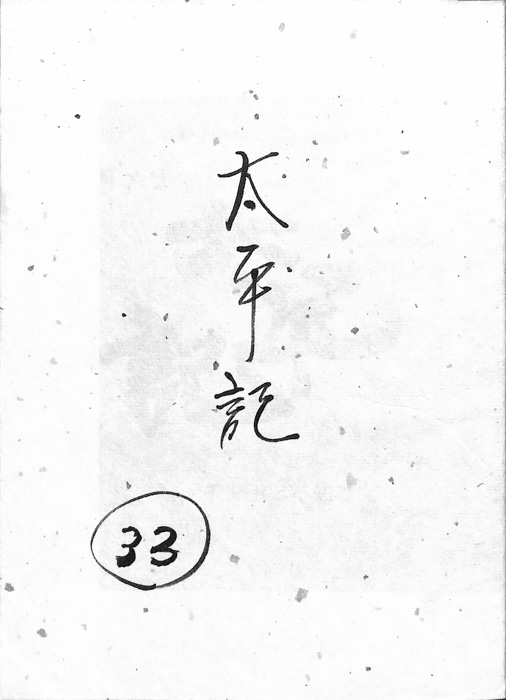 太平記
33